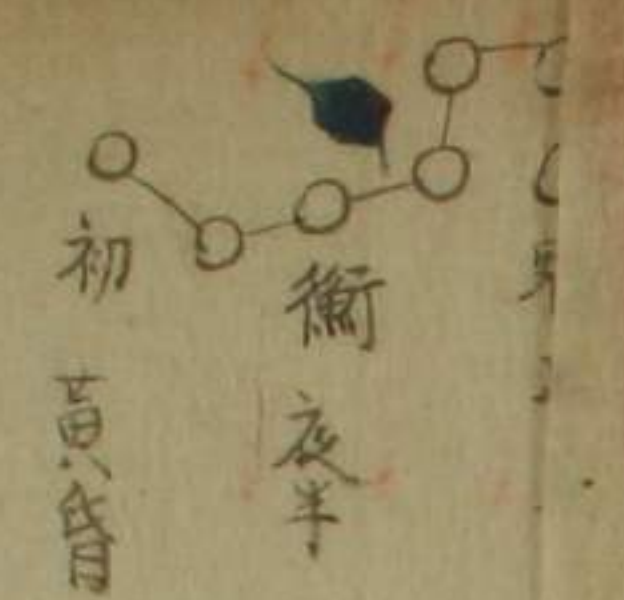 衡 夜半
初 黃昏